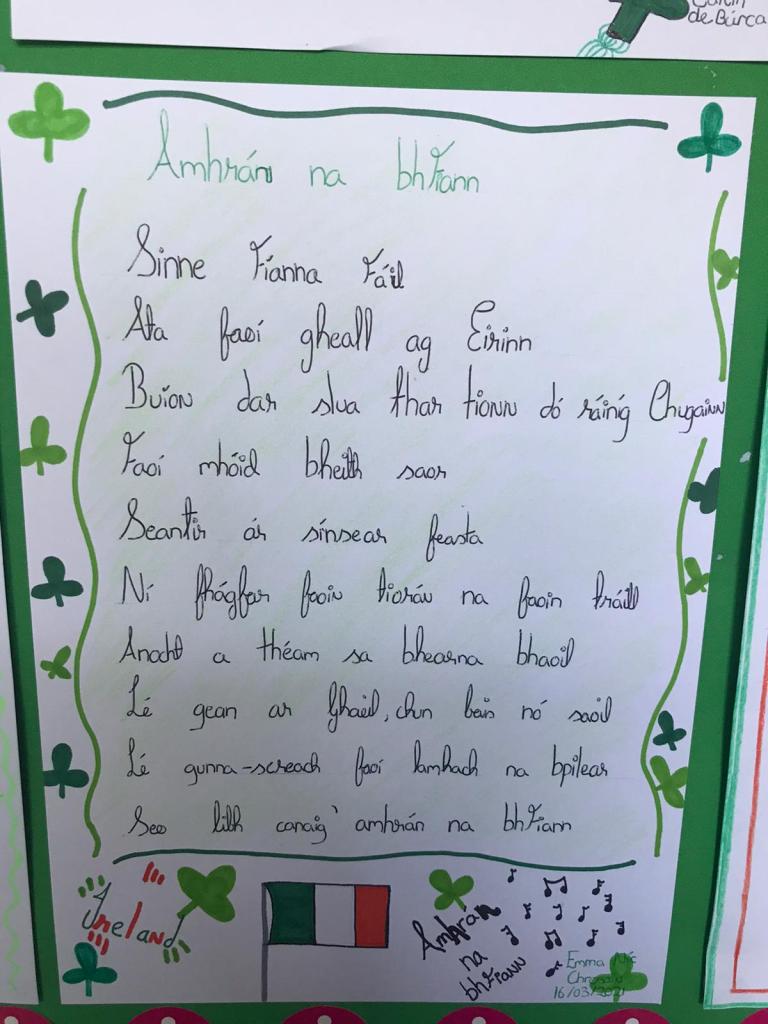 de Búrca
Amhrán na bhFiann
Sinne Fianna Fáil
Ata faoi gheall ag Eirinn
Buíon dar slua thar tionn dó ráiníg Chugainn
Faoi mhóid bheith saor
Seantír ár sínsear feasta
Ní fhágfar faoin tiorán na faoin tráill
Anocht a théam sa bhearna bhaoil
Lé gean ar Ghaeil, chun bais nó saoil
Lé gunna-screach faoi lamhach na bpilear
Seo libh canaig' amhrán na bhFiann
Ireland
Amhrán
na
bhFiann
Emma Nic
16/03/2021